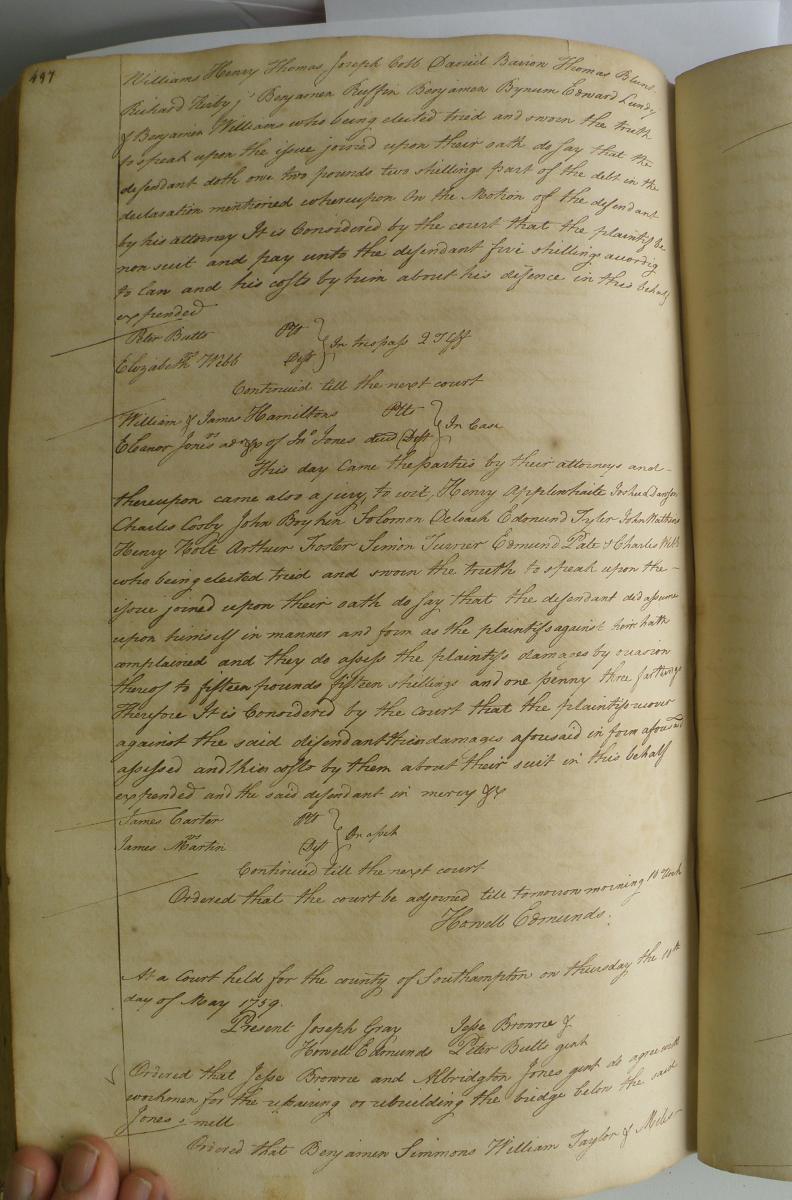 497
Williams Henry Thomas Joseph Cobb David Barron Thomas Blunt
Richard Kirby j Benjamen Ruffin Benjamen Bynum Edward Lundy
& Benjamen Williams who being elected tried and sworn the truth
to speak upon the issue joined upon their oath do say that the
defendant doth one two pounds two shillings part of the debt in the
declaration mentioned whereupon On the Motion of the defendant
by his attorney It is Considered by the court that the plaintif be
non suit and pay unto the defendant five shillings according
to Law and his costs by him about his defence in this behalf
expended
Peter Butts Plt
In trespass
Elizabeth Webb Deft
Continued till the next court
William & James Hamiltons Plts
In Case
Eleanor Jones admx of Jno Jones decd Deft
This day Came the parties by their attorneys and
thereupon came also a jury, to wit, Henry Applewhaite Joshua
Charles Cosby John Boykin Solomon Deloach Edmund Tyler John Watkins
Henry Holt Arthur Foster Simon Turner Edmund Pate & Charles Webb
who being elected tried and sworn the truth to speak upon the
issue joined upon their oath do say that the defendant did assume
upon himself in manner and form as the plaintifs against him hath
complained and they do assess the plaintifs damages by occasion
thereof to fifteen pounds fifteen shillings and one penny three farthings
Therefore It is Considered by the court that the plaintifs recover
against the said defendant their damages aforesaid in form aforesaid
assessed and their costs by them about their suit in this behalf
expended and the said defendant in mercy &c
James Carter Plt
James Martin Deft
Continued till the next court
Ordered that the court be adjorned till tomorrow morning 10
Howell Edmunds.
At a Court held for the county of Southampton on thursday the 10th
day of May 1759.
Present Joseph Gray Jesse Browne &
Howell Edmunds Peter Butts gent
Ordered that Jesse Browne and Albridgton Jones gent do agree with
workmen for the repairing or rebuilding the bridge below the said
Jones's mill
Ordered that Benjamen Simmons William Taylor & Miles